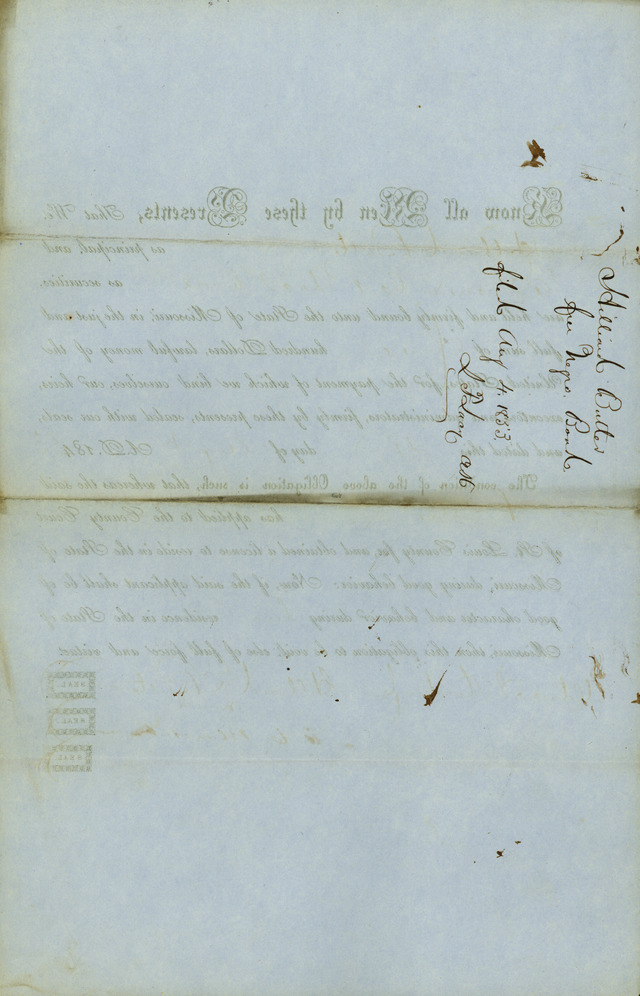 Hilliard Butler
free Negro, Bond
filed Aug 4. 1853
Know all Men by these Presents, That We
as principal, and
as securities,
are held and firmly bound unto the State of Missouri, in the just and
full sum of hundred Dollars, lawful money of the
United States, for the payment of which we bind ourselves, our heirs,
executors and administrators, firmly by these presents, sealed with our seals,
and dated this day of A.D. 184
The condition of the above Obligation is such, that whereas the said
has applied to the County Court
of St. Louis County for, and obtained a license to reside in the State of
Missouri, during good behavior: Now, if the said applicant shall be of
good character and behavior during residence in the State of
Missouri, then this obligation to be void, else of full force and virtue.
SEAL
SEAL
SEAL